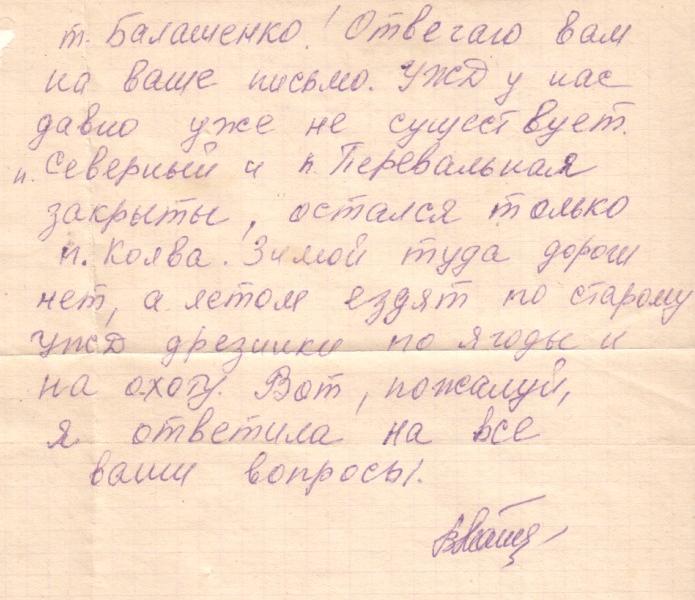 т. Балашенко! Отвечаю вам
на ваше письмо. УЖД у нас
давно уже не существует.
п. Северный и п. Перевальная
закрыты, остался только
п. Колва. Зимой туда дороги
нет, а летом ездят по старому
УЖД дрезинки по ягоды и
на охоту. Вот, пожалуй,
я ответила на все
ваши вопросы.